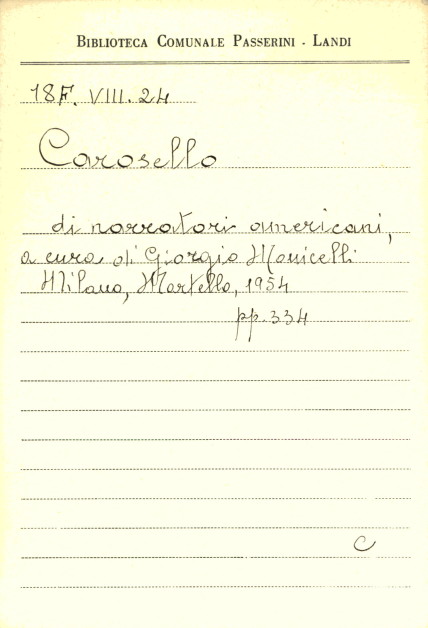 BIBLIOTECA COMUNALE PASSERINI - LANDI
18F. VIII. 24
Carosello
di narratori americani,
a cura di Giorgio Monicelli
Milano, Martello, 1954
pp. 334
C